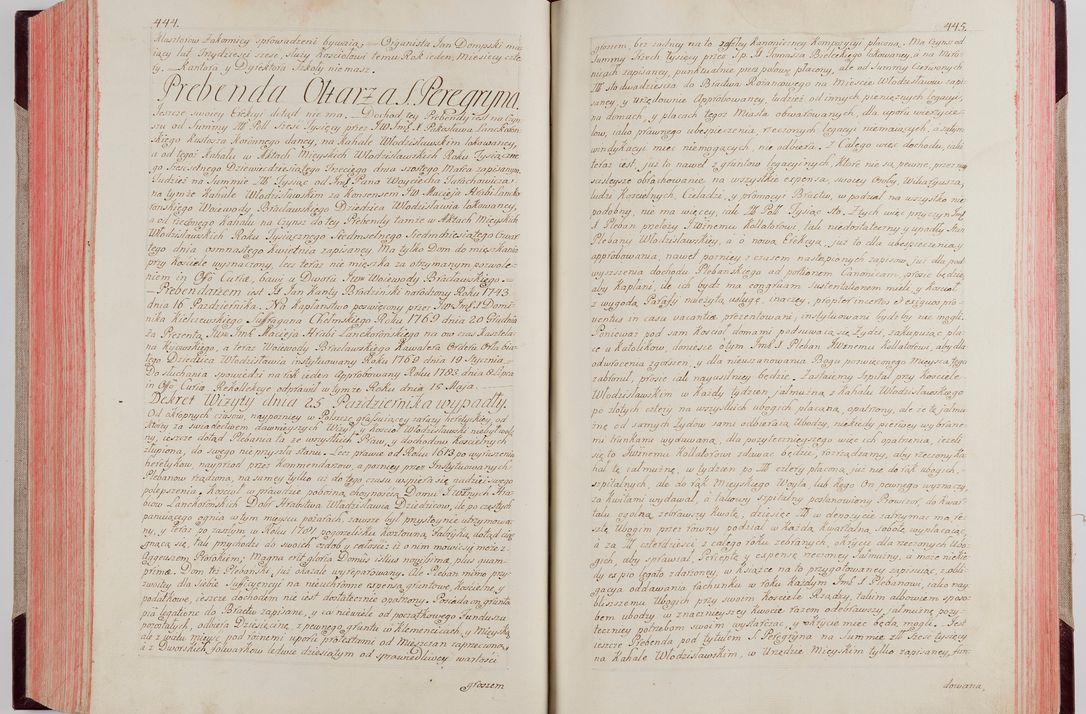 444.
Klasztorow Zakonnicy sprowadzeni bywaią. Organista Jan Dompski ma
iący lat Trzydzieści sześć, służy Kościołowi temu Rok ieden, Miesięcy czte
ry. Kantora y Dyrektora Szkoły nie masz.
Prebenda Ołtarza S. Peregryna.
Jeszcze swoiey Erekcyi dotąd nie ma. Dochod tey Prebendy iest na Czyn
szu od Summy Zł Pol: Sześć Tysięcy przez JW. Imć X.
skiego Kustosza Koronnego daney, na Kahale Włodzisławskim lokowaney,
a od tegoż Kahału w Aktach Mieyskich Włodzisławskich Roku Tysiączne
go Sześćsetnego Dziewięćdziesiątego Trzeciego dnia szostego Marca zapisanym.
Tudzież na Summie Zł Tysiąc od Imć Pana Woyciecha
na tymże Kahale Włodzisławskim za Konsensem JW. Macieja Hrabi Lancko
rońskiego Woiewody Bracławskiego, Dziedzica Włodzisławia lokowaney,
a od rzeczonego Kahału na Czynsz do tey Prebendy tamże w Aktach Mieyskich
Włodzisławskich Roku Tysiącznego Siedmsetnego Siedmdziesiątego Czwar
tego dnia osmnastego Kwietnia zapisaney. Ma tylko Dom do mieszkania
przy kościele wyznaczony, lecz teraz nie mieszka za otrzymanym pozwole
niem in Offo Curiæ, bawi u Dworu JWW Woiewody Bracławskiego.
Prebendarzem iest X. Jan Kanty Brodziński narodzony Roku 1743.
dnia 16 Października. Na Kapłaństwo poswięcony przez JW. Imć X. Domi
nika Kiełczewskiego Suffragana Chełmskiego Roku 1769 dnia 20 Grudnia
za Prezentą JW. Imć Macieja Hrabi Lanckorońskiego na on czas Kasztela
na Kijowskiego, a teraz Woiewody Bracławskiego Kawalera Orderu Orła bia
łego Dziedzica Włodzisławia instytuowany Roku 1769 dnia 19 Stycznia.
Do słuchania spowiedzi na rok ieden Approbowany Roku 1783 dnia 8 Lipca
in Offo Curiæ. Rekollekcye odprawił w tymże Roku dnia 15 Maja.
Dekret Wizyty dnia 25. Października wypadły.
Od okropnych czasow, naypozniey w Polszcze grassuiącey zarazy heretyckiej, od
ktorey za swiadectwem dawnieyszych Wizyt y kościoł Włodzisławski niebył wol
ny, ieszcze dotąd Plebania ta ze wszystkich Praw, y dochodow kościelnych
złupiona, do swego nie przyszła stanu. Lecz prawie od Roku 1613 po wyrzuceniu
heretykow, nayprzod przez Kommendarzow, a pozniey przez Instytuowanych
Plebanow rządzona, na samey tylko az do tego czasu wspiera się nadziei swego
polepszenia. Kościoł w prawdzie pobożną choynością Domu JWWnych Hra
biow Lanckorońskich Dobr Hrabstwa Włodzisławia Dziedzicow, ile po częstych
panuiącego ognia w tym mieyscu pożarach, zawsze był przystoynie utrzymowa
ny, y teraz po zaszłym w Roku 1781 pogorzelisku kosztowną Fabryką dotąd cią
gnącą się, tak przychodzi do swoich ozdob y całości: iż o nim mowić się może z
Aggæuszem Prorokiem: Magna erit gloria Domus istius novissimæ, plus quam
primæ. Dom też Plebański już okazale wyreparowany. Ale Pleban mimo przy
zwoitey dla siebie sufficyencyi na nieuchronne expensa, gruntowe, kościelne y
podatkowe, ieszcze dochodem nie iest dostatecznie opatrzony. Posiada on grunta
pia legatione do Bractw zapisane, y co niewiele od początkowego Funduszu
pozostałych, odbiera Dziesięcinę z pewnego gruntu w Klemencicach, y Mieyską,
ale z wielu mieysc pod różnemi uporu protestami od Mieszczan zaprzeczoną;
a z Dworskich folwarkow ledwie dziesiątym od sprawiedliwey wartości
groszem
445.
groszem, bez zaszłey na to żadney kanoniczney kompozycyi płaconą. Ma Czynsz od
Summy Trzech Tysięcy przez Śp. X. Tomasza Bieleckiego lokowaney, a na Miero
nicach zapisaney, punktualnie przez połowę płacony, ale od Summy Czerwonych
Zł sto dwadzieścia do Bractwa Rożańcowego na Mieście Włodzisławiu zapi
saney, y Urzędownie Approbowaney, tudzież od innych pieniężnych legacyi,
na domach, y placach tegoż Miasta obwarowanych, dla uporu wierzycie
low, iako prawnego ubespieczenia, rzeczonych legacyi niemaiących, a zatym
windykacyi mieć niemogących, nie odbiera. Z Całego więc dochodu, iaki
teraz iest, już to nawet z gruntow legacyinych, ktore nie są pewne, przez nay
ściśleysze obrachowanie na wszystkie expensa, swoiey Osoby, Wikaryusza,
ludzi Kościelnych, Czeladzi, y promocyi Bractw, w podział na wszystko nie
podobny, nie ma więcey, iak Zł Pol: Tysiąc sto. Z tych więc przyczyn Imć
X Pleban przełoży JWnemu Kollatorowi, tak niedostateczny y upadły stan
Plebany Włodzisławskiey, a o nową Erekcyą już to dla ubespieczenia, y
approbowania, nawet poźniey z czasem nastąpionych zapisow, już dla pod
wyższenia dochodu Plebańskiego ad portionem Canonicam, prosić będzie,
aby Kapłani, ile ich bydz ma congruam sustentationem mieli, y kościoł
z wygodą Parafii należytą usługę, inaczey, propter incertos et exiguos pro=
ventus in casu vacantiæ prezentowani, instytuowani bydź by nie mogli.
Ponieważ pod sam Kościoł domami podsuwaią się Żydzi, zakupuiąc pla=
ce u Katolikow, doniesie o tym Imć X Pleban JWnemu Kollatorowi, aby dla
odwrocenia zgorszeń, y dla nieuszanowania Bogu poswięconego Mieysca, tego
zabronił, prosić iak nayusilniey będzie. Zastaiemy Szpital przy Kościele
Włodzisławskim w każdy tydzień jałmużną z Kahału Włodzisławskiego
po złotych cztery na wszystkich ubogich płaconą, opatrzony, ale że tę jałmu
żnę od samych Żydow sami odbieraią Ubodzy, niekiedy pierwey wybrane=
mi trunkami wydawaną, dla pożytecznieyszego więc ich opatrzenia, ieżeli
się to JWnemu Kollatorowi zdawać będzie, rozrządzamy, aby rzeczony Ka
hał tę jałmużnę w tydzień po Zł cztery płaconą, już nie do rąk Ubogich
szpitalnych, ale do rąk Mieyskiego Woyta lub kogo On pewnego wyznaczy,
za Kwitami wydawał, a takowy szpitalny postanowiony Prowizor, do kwar
tału ogolną zebrawszy kwotę, dziesięć Zł w depozycie zatrzymać ma, re
sztę Ubogim przez rowny podział w każdą kwartalną sobotę wypłacaiąc,
a za Zł czterdzieści z całego roku zebranych, odzienie dla rzeczonych Ubo=
gich, aby sprawiał. Perceptę y expensę rzeczoney jałmużny, a może niekie=
dy ex pio legato zdarzoney, w książce na to przygotowaney zapisuiąc, z obli=
gacyą oddawania rachunku w roku każdym Imć X. Plebanowi, iako nay
bliższemu Ubogich przy swoim Kościele Rządzcy, takim albowiem sposo=
bem ubodzy w znacznieyszey kwocie razem odebrawszy jałmużnę, poży=
teczniey potrzebom swoim wystarczać, y odzycie mieć będą mogli. Jest
ieszcze Prebenda pod tytułem S. Peregryna na Summie Zł Sześć tysięcy
na Kahale Włodzisławskim, w Urzędzie Mieyskim tylko zapisaney, fun=
dowana,